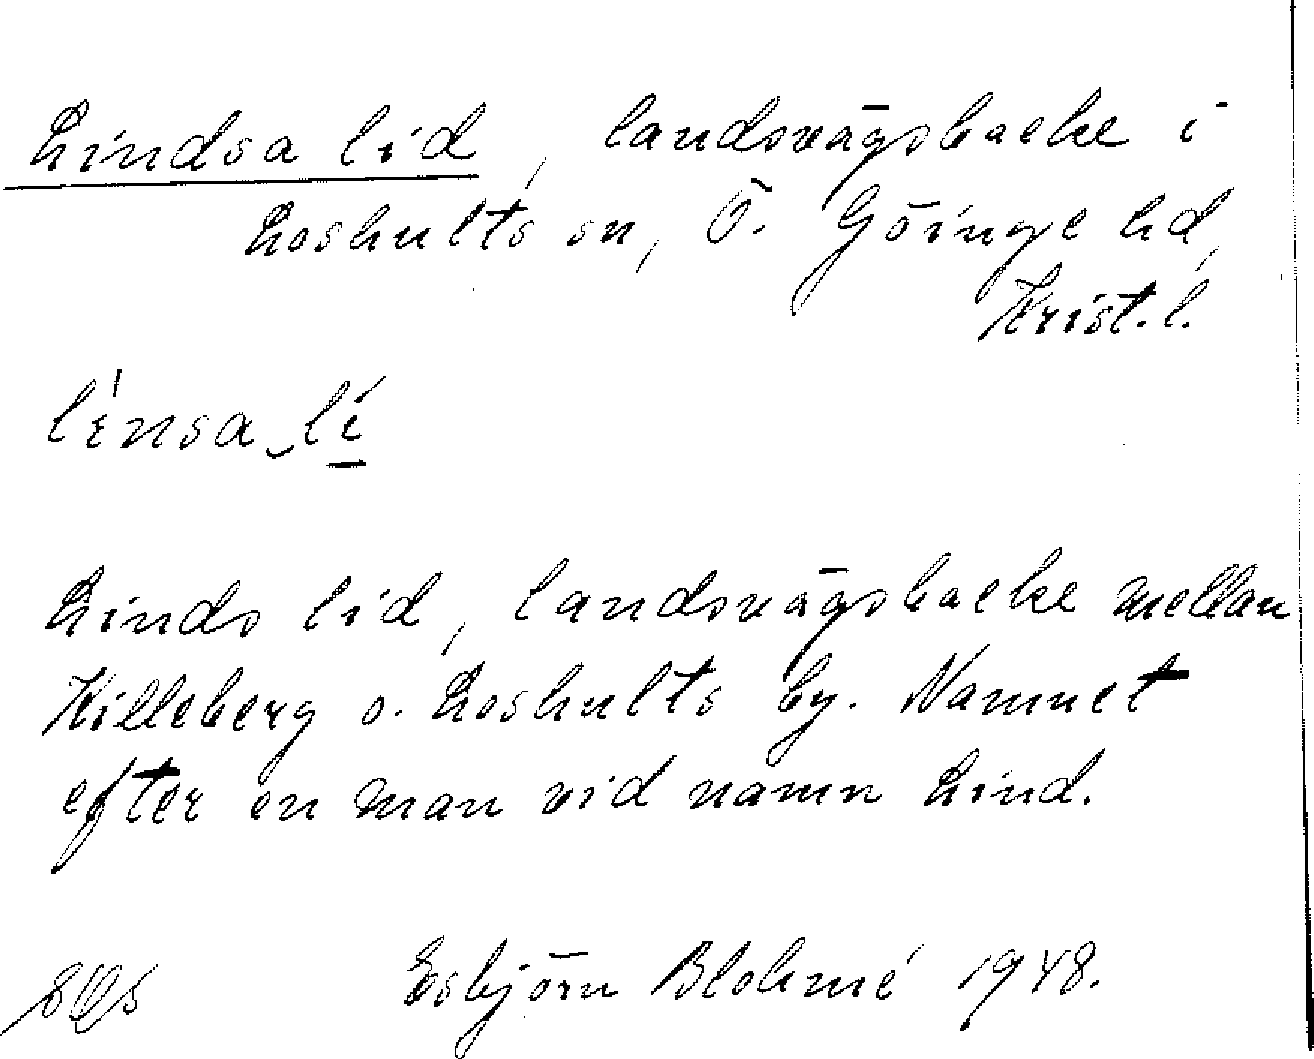 Lindsa lid, landsvägsbacke i
Loshults sn, Ö. Göinge hd,
Krist. l.
lìnsa‿lí
Linds lid, landsvägsbacke mellan
Killeberg o. Loshults by. Namnet
efter en man vid namn Lind.
Esbjörn Blohmé 1948.